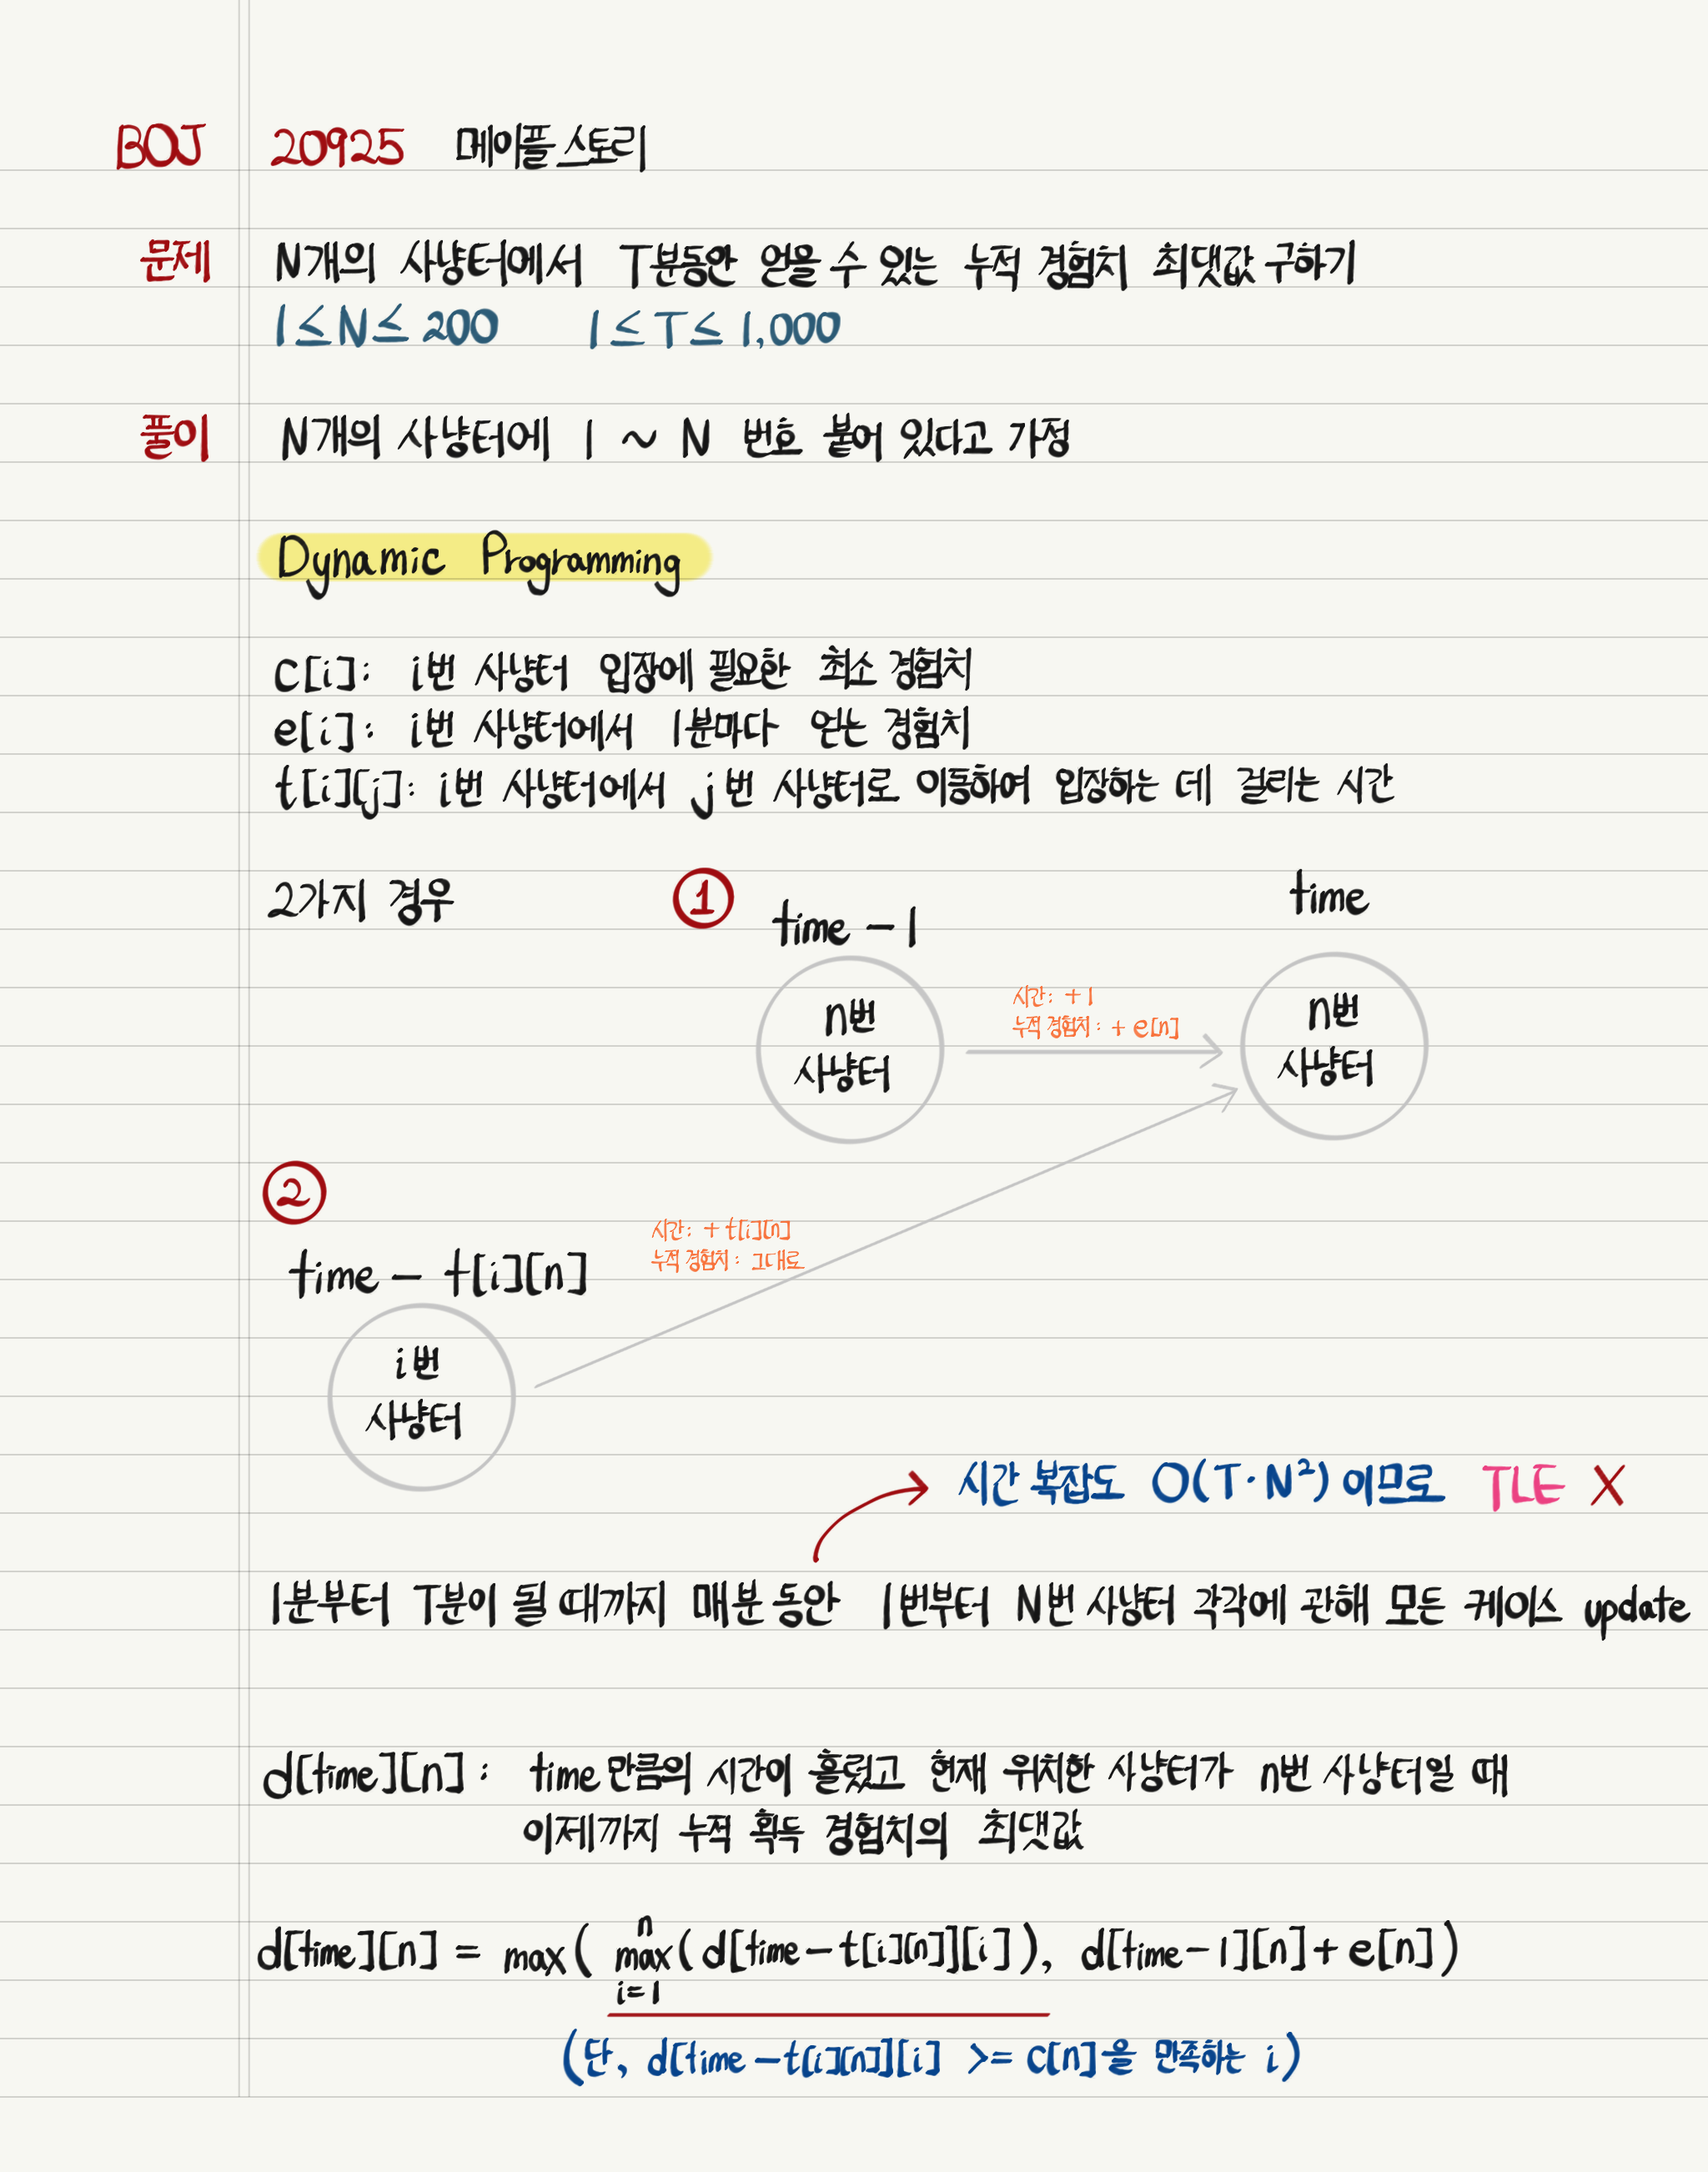 BOJ 20925 메이플스토리
문제 N개의 사냥터에서 T분동안 얻을 수 있는 누적 경험치 최댓값 구하기
1 ≤ N ≤ 200 1 ≤ T ≤ 1,000
풀이 N개의 사냥터에 1 ~ N 번호 붙어 있다고 가정
Dynamic Programming
c[i]: i번 사냥터 입장에 필요한 최소 경험치
e[i]: i번 사냥터에서 1분마다 얻는 경험치
t[i][j]: i번 사냥터에서 j번 사냥터로 이동하여 입장하는 데 걸리는 시간
2가지 경우
① time - 1
time
n번
사냥터
시간: +1
누적 경험치: + e[n]
n번
사냥터
②
time - t[i][n]
시간: + t[i][n]
누적 경험치: 그대로
i번
사냥터
시간 복잡도 O(T·N²) 이므로 TLE X
1분부터 T분이 될 때까지 매분 동안 1번부터 N번 사냥터 각각에 관해 모든 케이스 update
d[time][n]: time만큼의 시간이 흘렀고 현재 위치한 사냥터가 n번 사냥터일 때
이제까지 누적 획득 경험치의 최댓값
n
d[time][n] = max( max( d[time-t[i][n]][i] ), d[time-1][n] + e[n] )
i=1
(단, d[time-t[i][n]][i] >= c[n]을 만족하는 i)